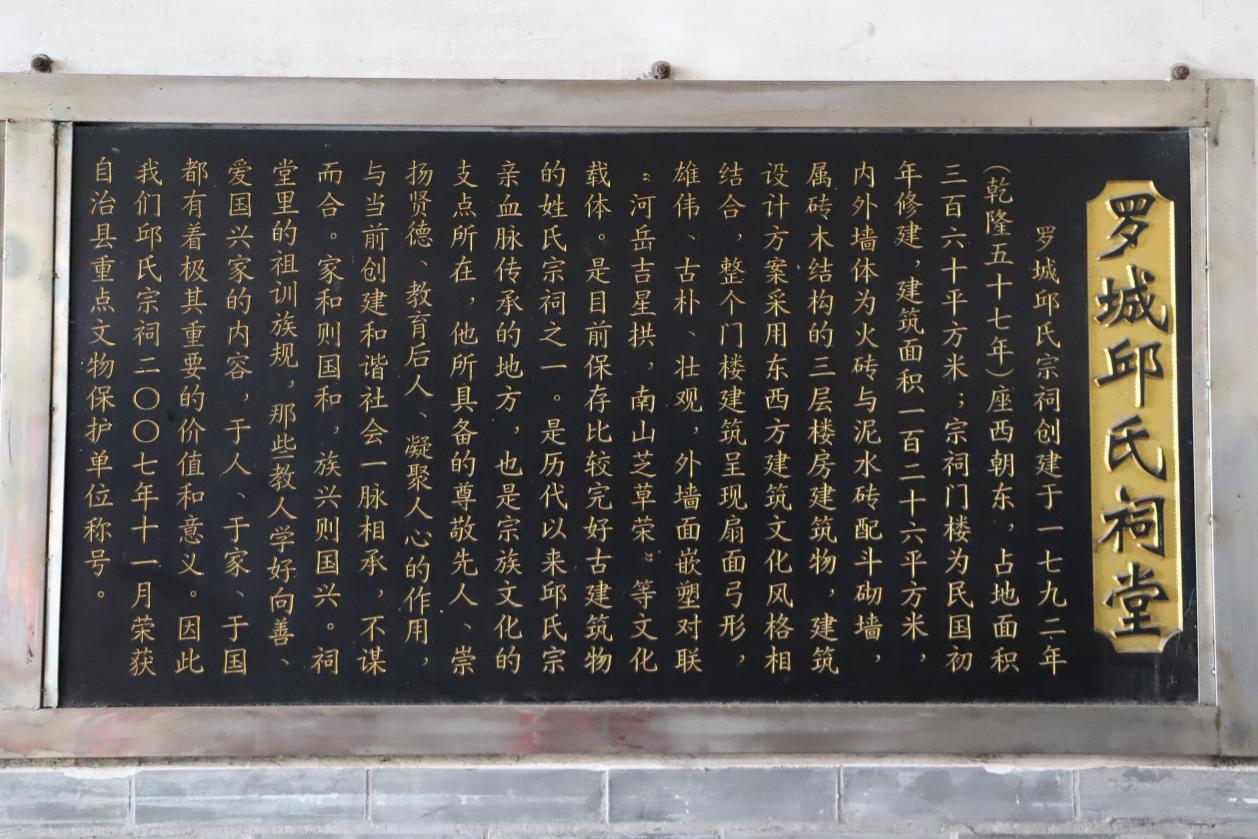 罗城邱氏祠堂
罗城邱氏宗祠创建于一七九二年
（乾隆五十七年）座西朝东，占地面积
三百六十平方米；宗祠门楼为民国初
年修建，建筑面积一百二十六平方米，
内外墙体为火砖与泥水砖配斗砌墙，
属砖木结构的三层楼房建筑物，建筑
设计方案采用东西方建筑文化风格相
结合，整个门楼建筑呈现扇面弓形，
雄伟、古朴、壮观，外墙面嵌塑对联
“河岳吉星拱，南山芝草荣”等文化
载体。是目前保存比较完好古建筑物
的姓氏宗祠之一。是历代以来邱氏宗
亲血脉传承的地方，也是宗族文化的
支点所在，他所具备的尊敬先人、崇
扬贤德、教育后人、凝聚人心的作用，
与当前创建和谐社会一脉相承，不谋
而合。家和则国和，族兴则国兴。祠
堂里的祖训族规，那些教人学好向善、
爱国兴家的内容，于人、于家、于国
都有着极其重要的价值和意义。因此
我们邱氏宗祠二〇〇七年十一月荣获
自治县重点文物保护单位称号。